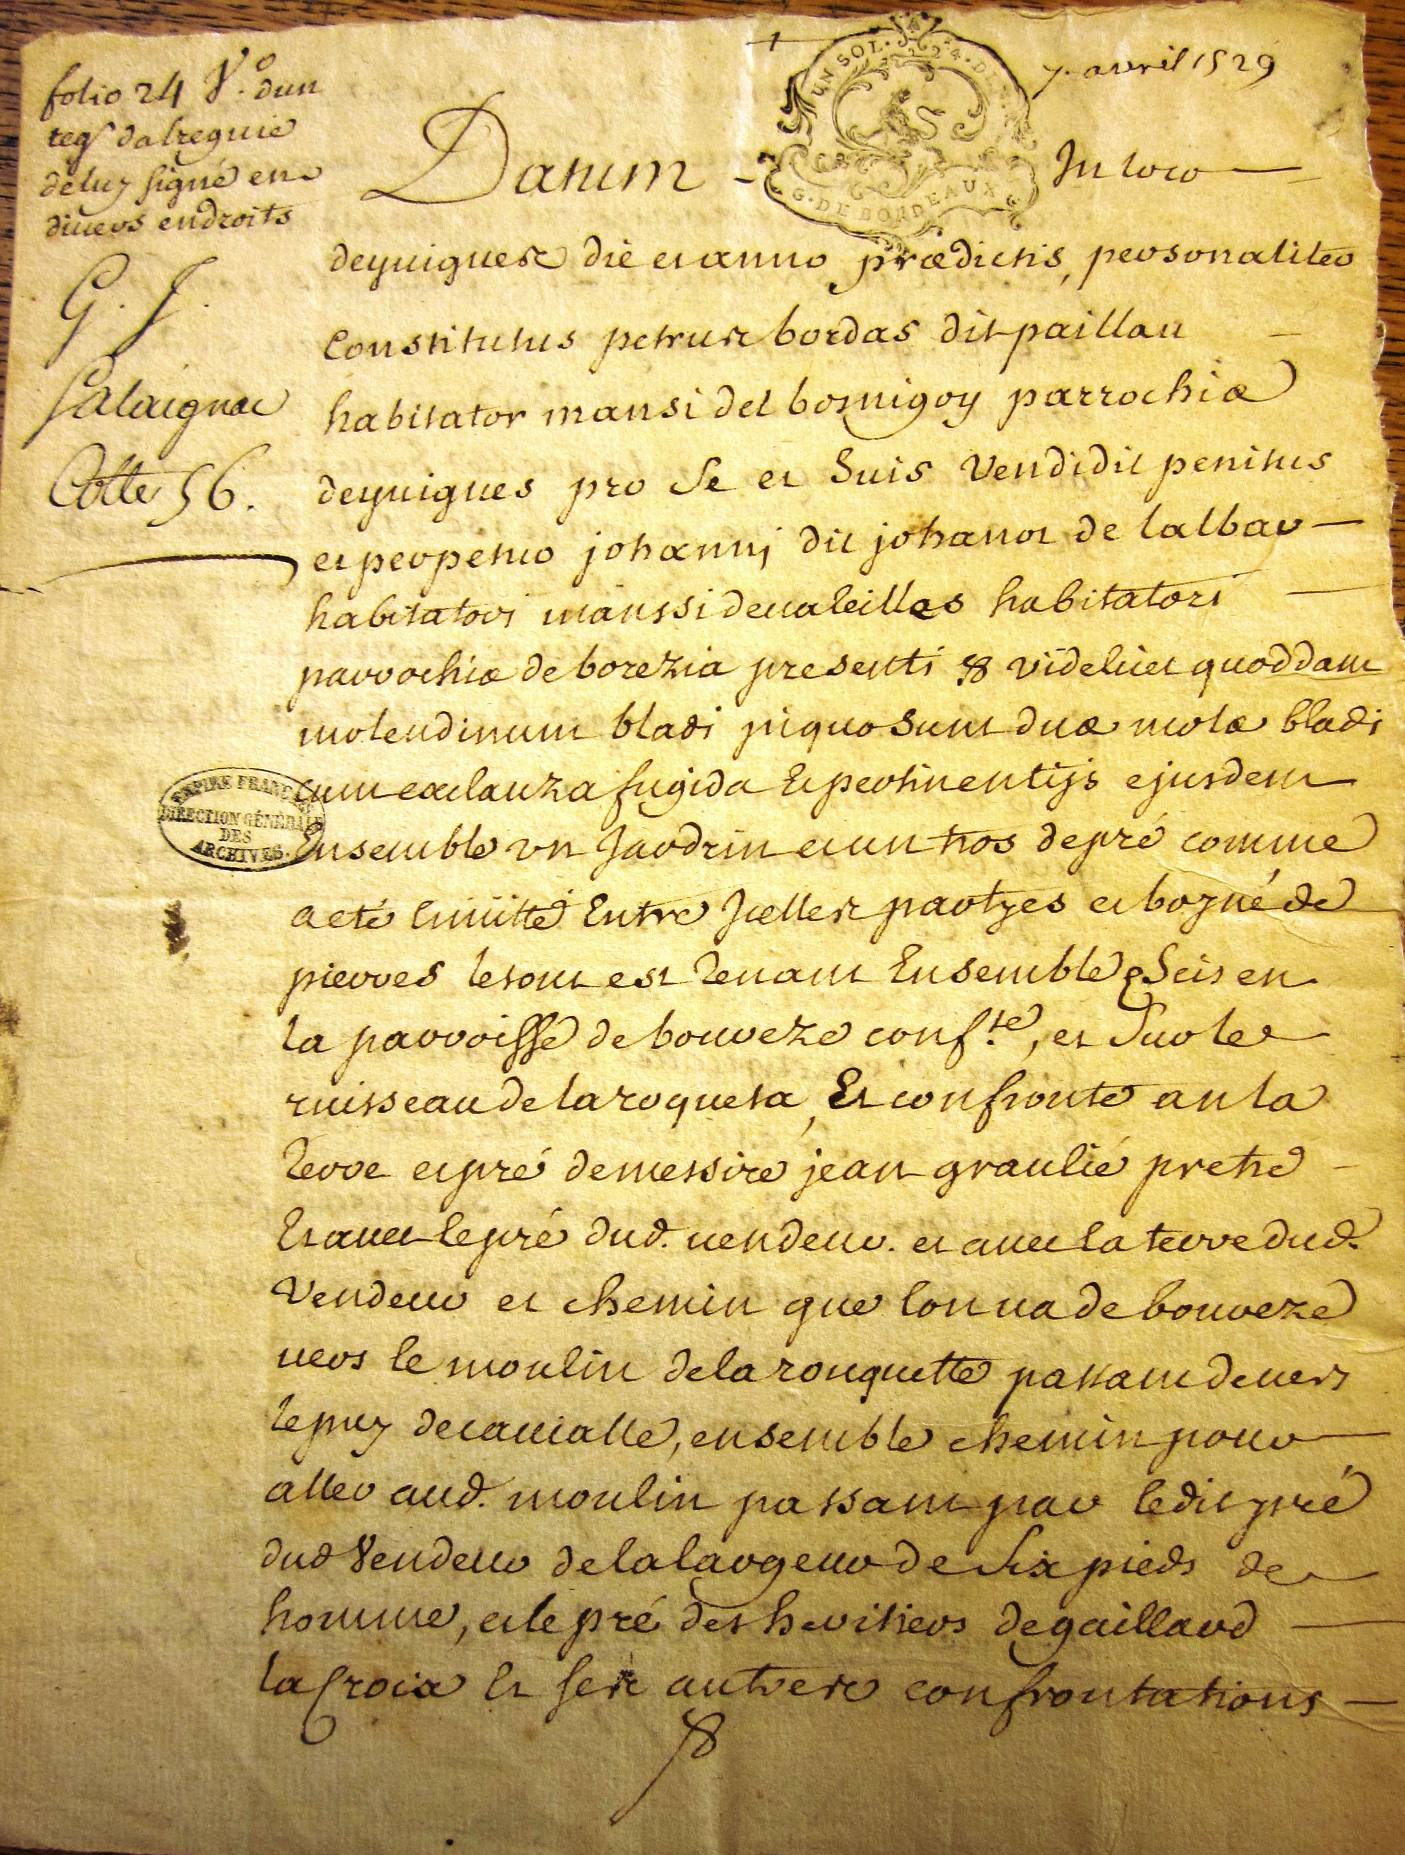 7. avril 1529
UN SOL. 4. D.
G. DE BORDEAUX
folio 24 V.o dun
reg dalreguie
deluy signé en
divers endroits
G. J.
Salaignac
Cotte 56.
Datum In loco
deyvigues die et anno prædictis, personaliter
Constitutus petrus bordas dit paillau
habitator mansi del bosnigoy parrochiæ
deyvigues pro se et suis vendidit penitus
et perpetuo johannj dit johanot de lalbar
habitatori manssi devaleilles habitatori
parrochiæ de borezia presenti &c videlicet quoddam
molendinum bladi jnquo sunt duæ molæ bladi
cum exclauza fugida et pertinentijs ejusdem
Ensemble vn Jardrin et un tros de pré comme
a eté limitté Entre Jcelles partyes et bogné de
pierres le tout est tenant Ensemble & Scis en
la parroisse de bourreze conf.te, et sur le
ruisseau de la roqueta, Et confronte an la
terre et pré de messire jean graulié pretre
Et avec le pré dud. vendeur. et avec la terre dud.
Vendeur et chemin que lon va de bourreze
vers le moulin de la rouquette passant devers
le puy de caucalle, ensemble chemin pour
aller aud. moulin passant par ledit pré
dud Vendeur de la largeur de six pieds de
homme, et le pré des heritiers de gaillard
la Croix Et ses autres confrontations
&
EMPIRE FRANÇAIS
DIRECTION GÉNÉRALE
DES
ARCHIVES.